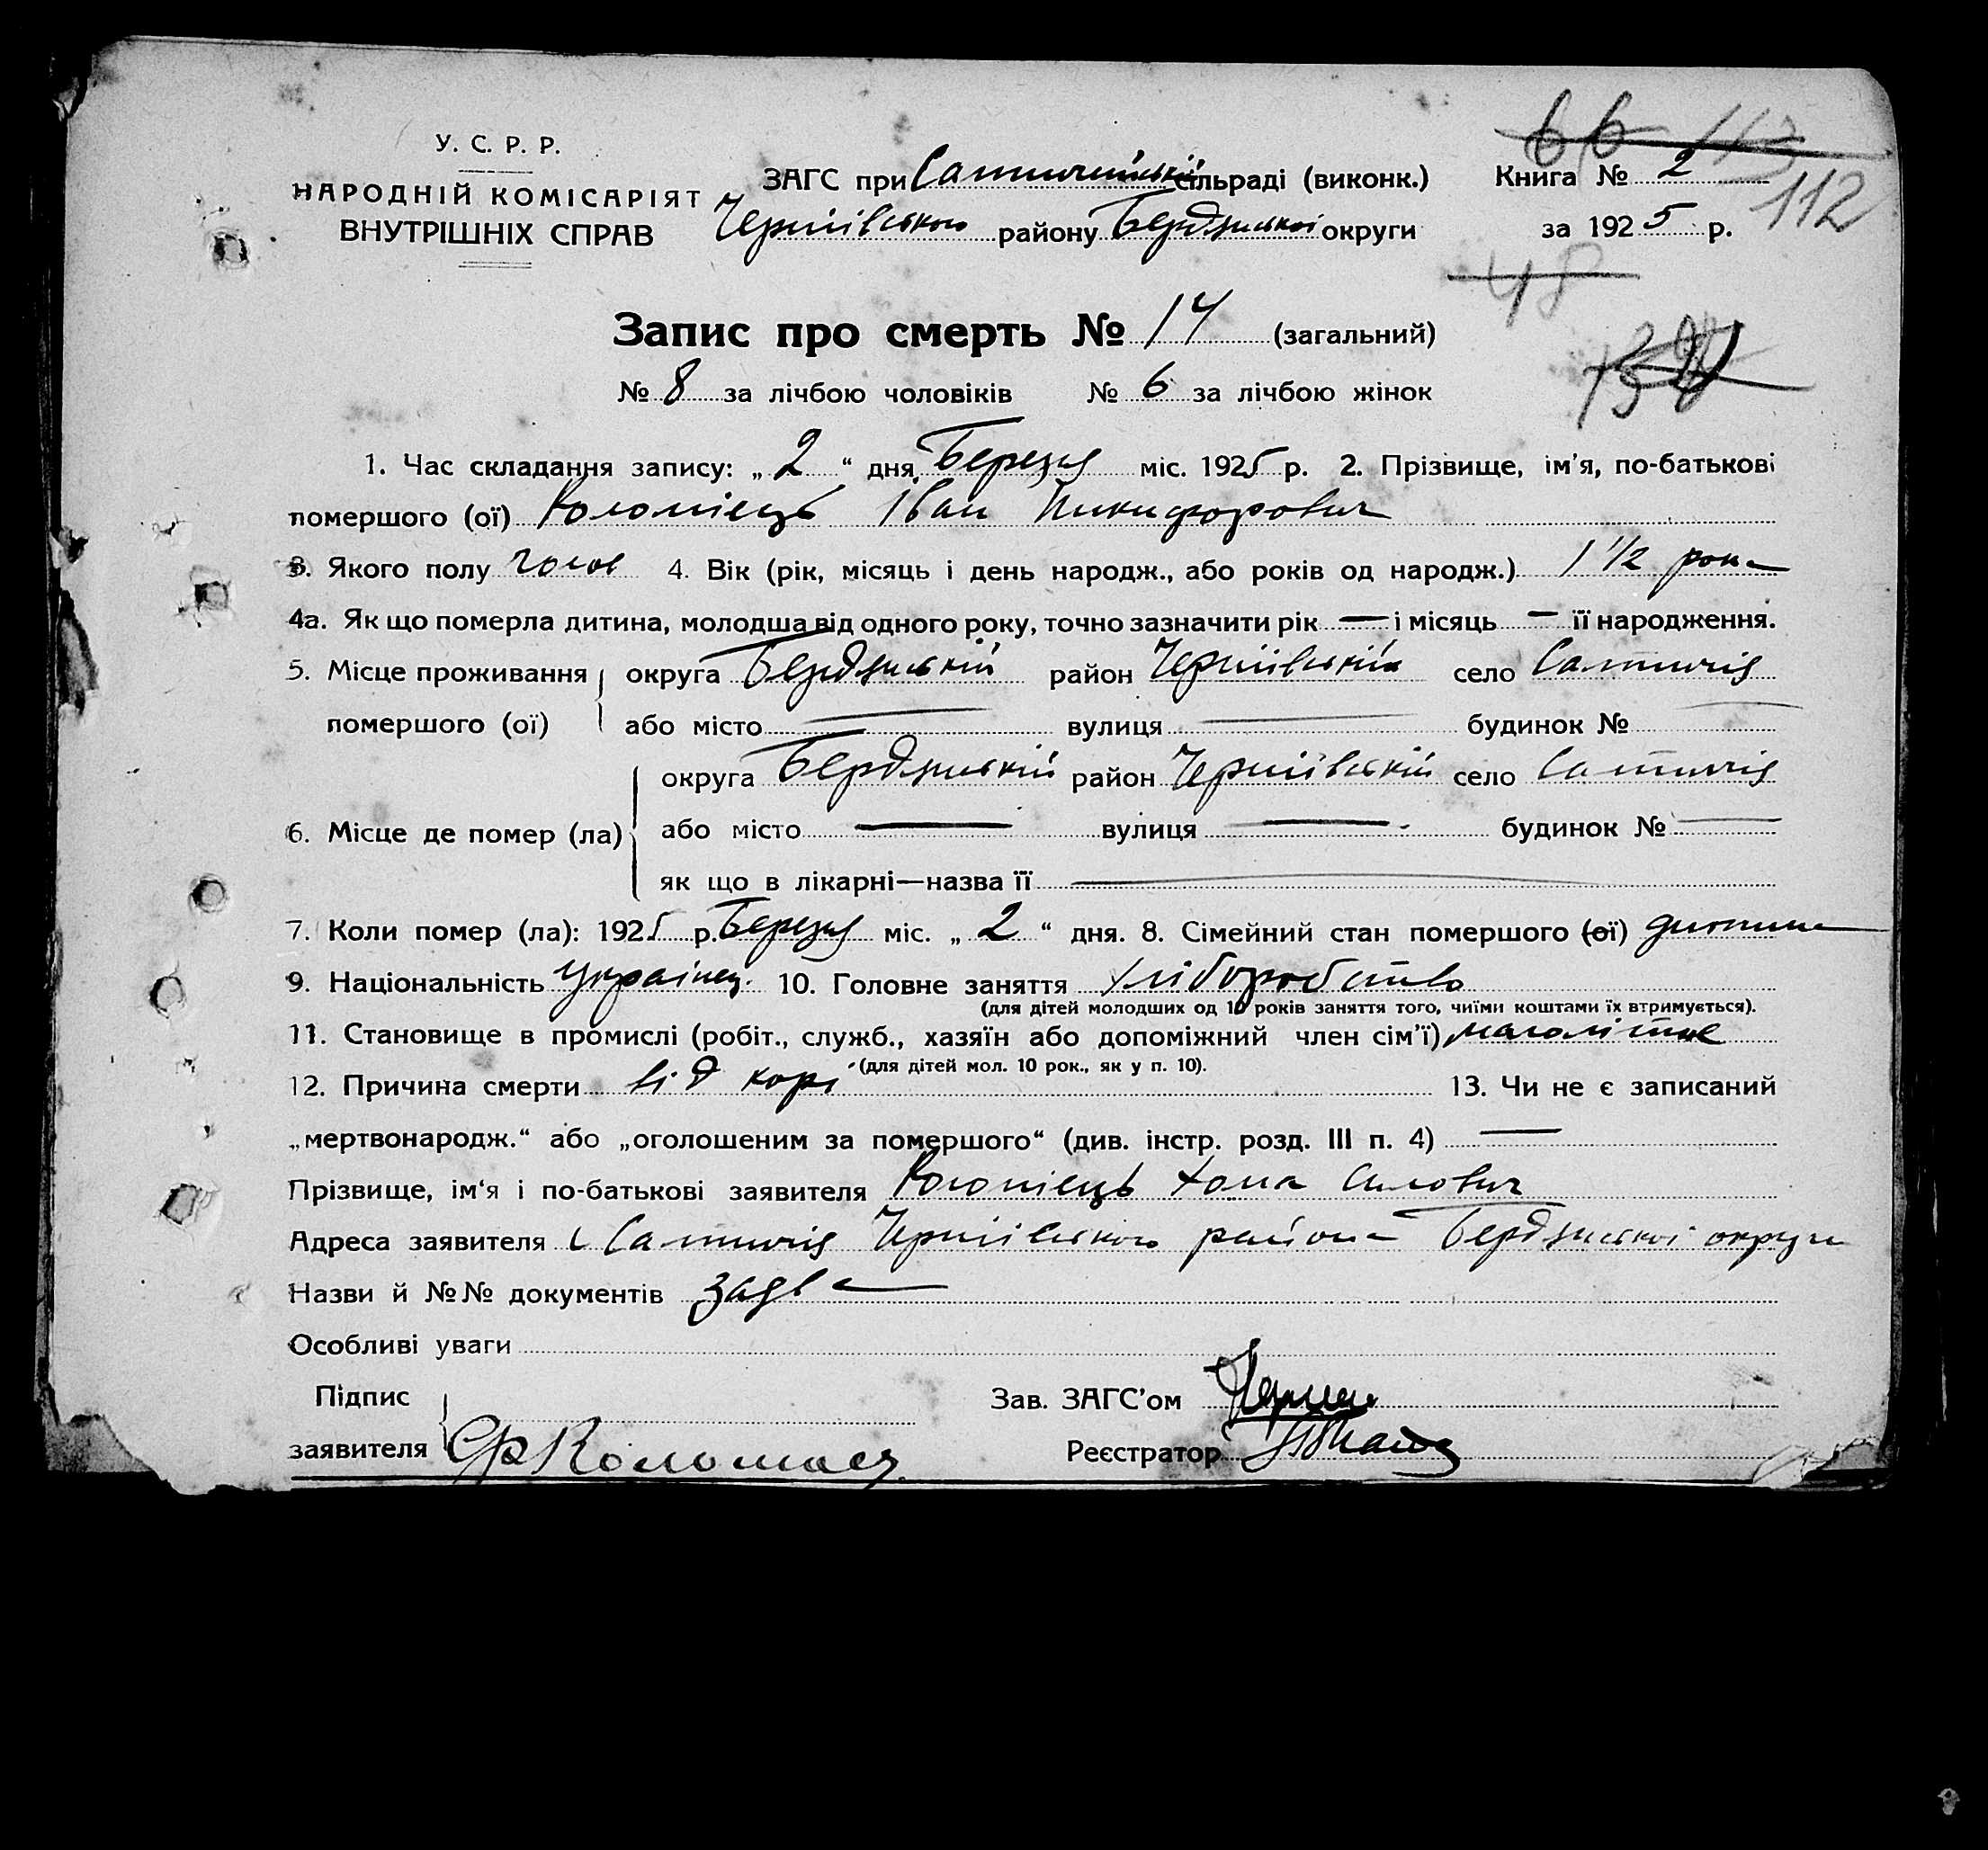 66 113
У. С. Р. Р.
НАРОДНІЙ КОМІСАРІЯТ
ВНУТРІШНІХ СПРАВ
ЗАГС при сільраді (виконк.) Книга № 2
112
Чернігівського району Бердянської округи за 1925 р.
48
Запис про смерть № 14 (загальний)
№ 8 за лічбою чоловіків № 6 за лічбою жінок
1. Час складання запису: „ 2 “ дня Березня міс. 1925 р. 2. Прізвище, ім'я, по-батькові
помершого (ої) Коломієць Іван Никифорович
3. Якого полу чолов 4. Вік (рік, місяць і день народж., або років од народж.) 1 1/2 рока
4а. Як що померла дитина, молодша від одного року, точно зазначити рік — і місяць — її народження.
5. Місце проживання округа Бердянській район Чернігівській село Салтичія
помершого (ої) або місто — вулиця — будинок № —
округа Бердянській район Чернігівській село Салтичія
6. Місце де помер (ла) або місто — вулиця — будинок № —
як що в лікарні—назва її —
7. Коли помер (ла): 1925 р. Березня міс. „ 2 “ дня. 8. Сімейний стан помершого (ої) дитина
9. Національність українец. 10. Головне заняття хліборобство
(для дітей молодших од 10 років заняття того, чиїми коштами їх втримується).
11. Становище в промислі (робіт., служб., хазяїн або допоміжний член сім'ї) малолітнє
(для дітей мол. 10 рок., як у п. 10).
12. Причина смерти від корі 13. Чи не є записаний
„мертвонародж.“ або „оголошеним за помершого“ (див. інстр. розд. III п. 4) —
Прізвище, ім'я і по-батькові заявителя Коломієць Хома
Адреса заявителя с Салтичія Чернігівського района Бердянської округи
Назви й №№ документів заява
Особливі уваги
Підпис Зав. ЗАГС'ом
заявителя Коломиец Реєстратор